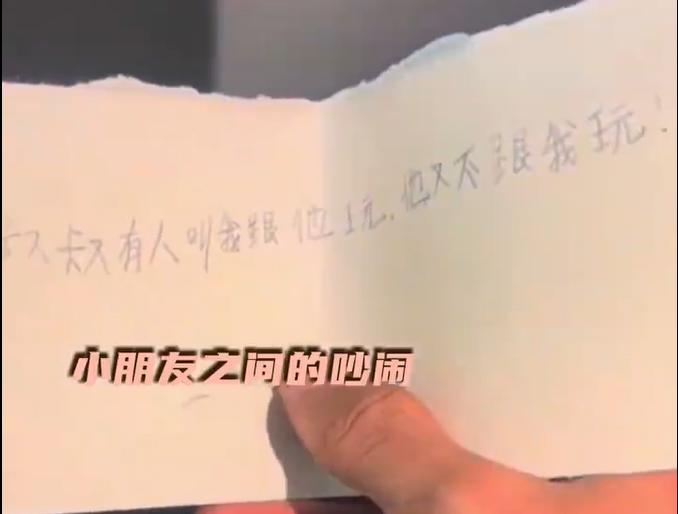 有人叫我跟他玩,他又不跟我玩!
小朋友之间的吵闹